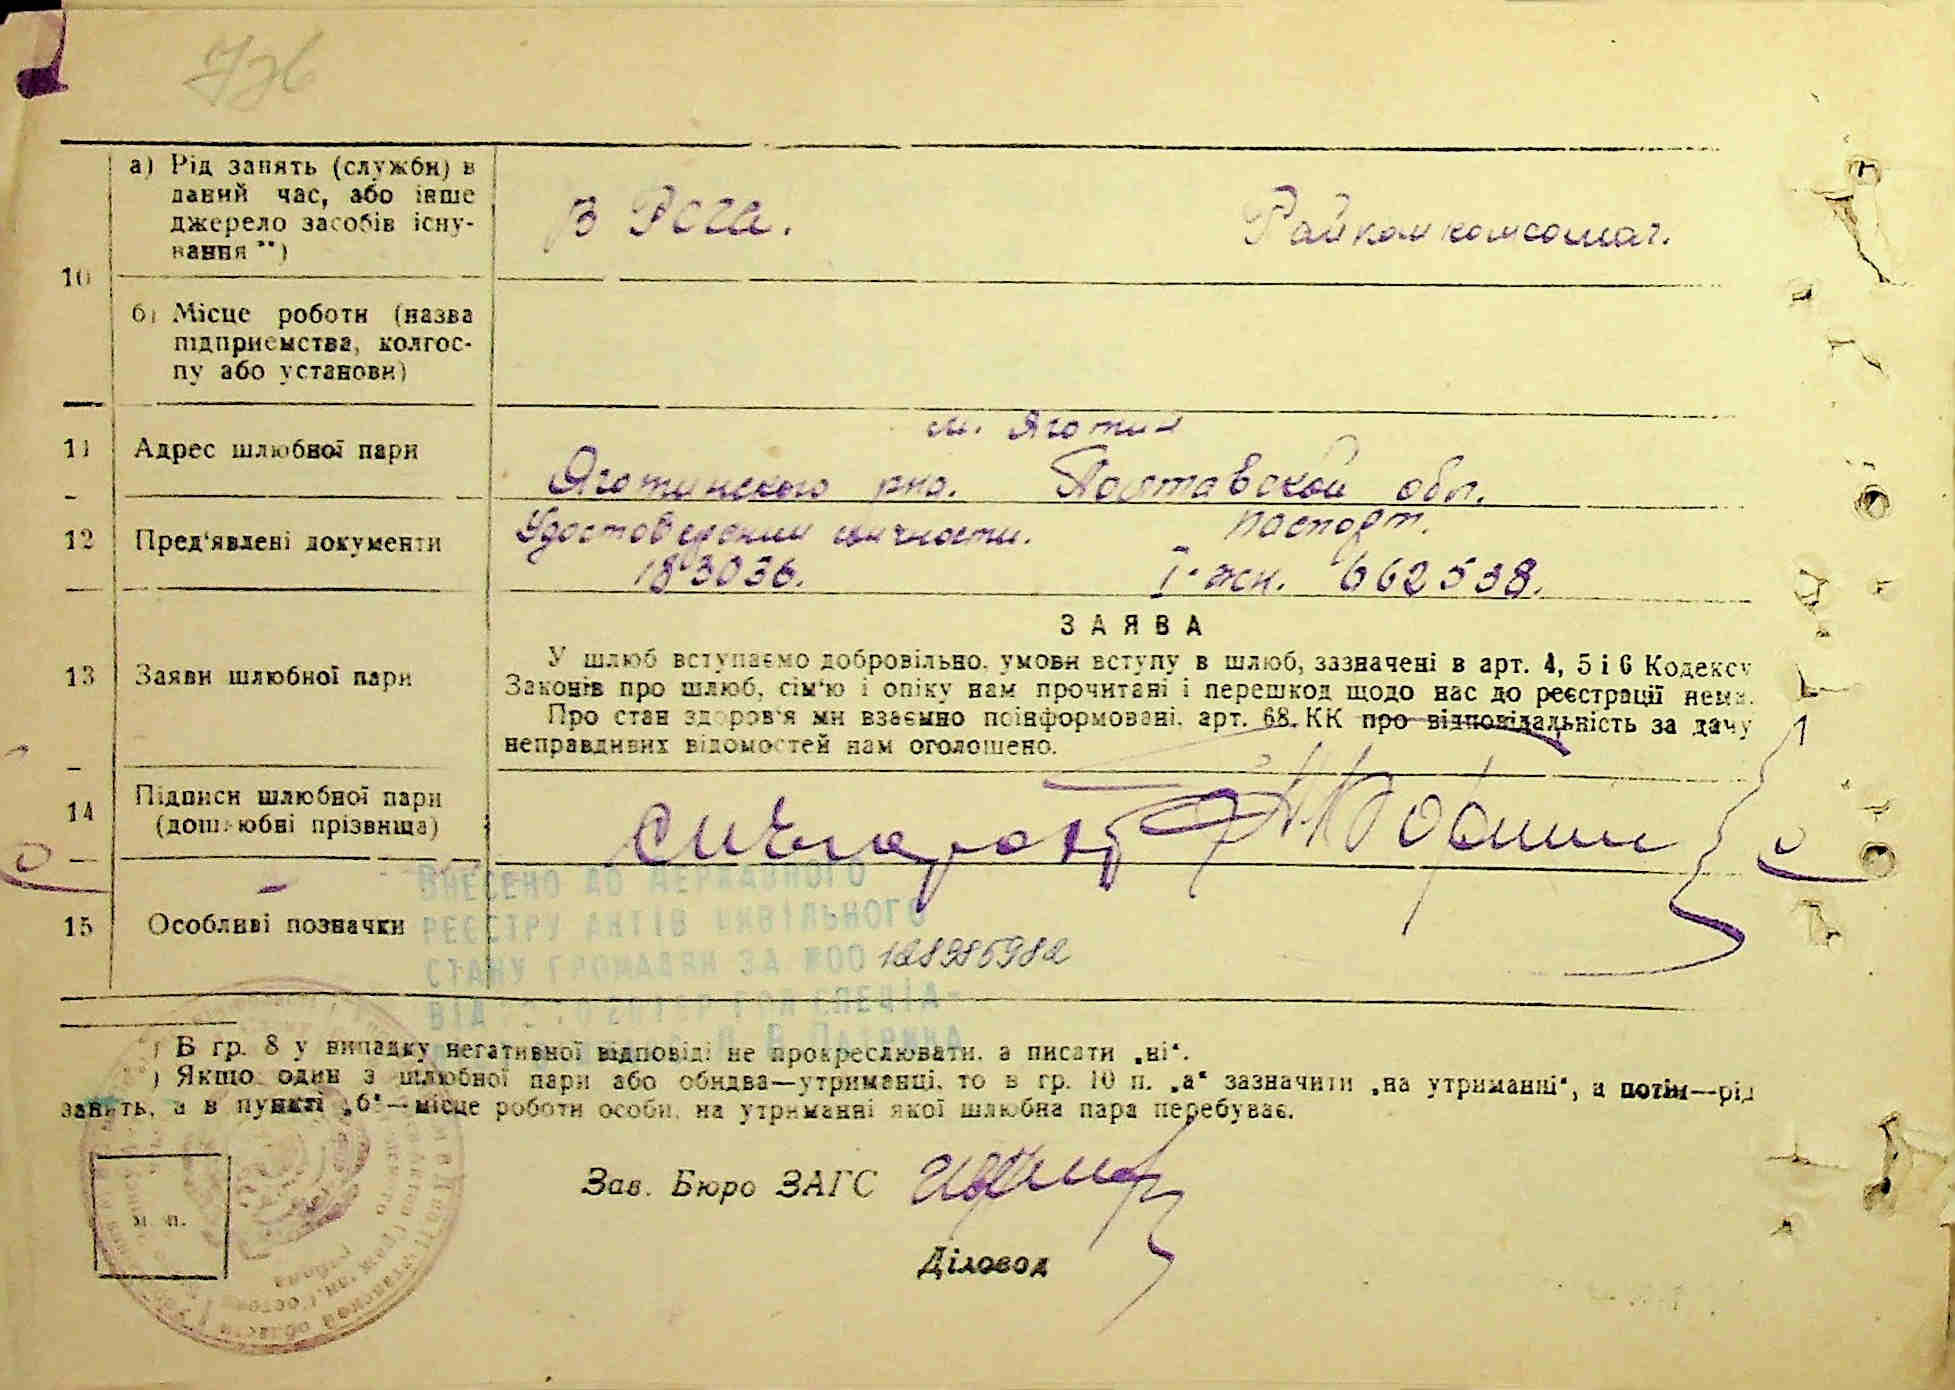 а) Рід занять (служби) в
даний час, або інше
джерело засобів існу-
вання **)
В Рога.
Райкомкомсомол.
10
б) Місце роботи (назва
підприємства, колгос-
пу або установи)
11
Адрес шлюбної пари
м. Яготин
Яготинского рно. Полтавской обл.
12
Пред'явлені документи
Удостоверении личности.
паспорт.
183036.
I-жк. 662538.
13
Заяви шлюбної пари
ЗАЯВА
У шлюб вступаємо добровільно, умови вступу в шлюб, зазначені в арт. 4, 5 і 6 Кодексу
Законів про шлюб, сім'ю і опіку нам прочитані і перешкод щодо нас до реєстрації нема.
Про стан здоров'я ми взаємно поінформовані, арт. 68. КК про відповідальність за дачу
неправдивих відомостей нам оголошено.
14
Підписи шлюбної пари
(дошлюбні прізвища)
15
Особливі позначки
ВНЕСЕНО ДО ДЕРЖАВНОГО
РЕЄСТРУ АКТІВ ЦИВІЛЬНОГО
СТАНУ ГРОМАДЯН ЗА №00 128985982
*) В гр. 8 у випадку негативної відповіді не прокреслювати, а писати „ні“.
**) Якщо один з шлюбної пари або обидва—утриманці, то в гр. 10 п. „а“ зазначити „на утриманні“, а потім—рід
занять, а в пункті „б“—місце роботи особи, на утриманні якої шлюбна пара перебуває.
м. п.
Зав. Бюро ЗАГС
Діловод